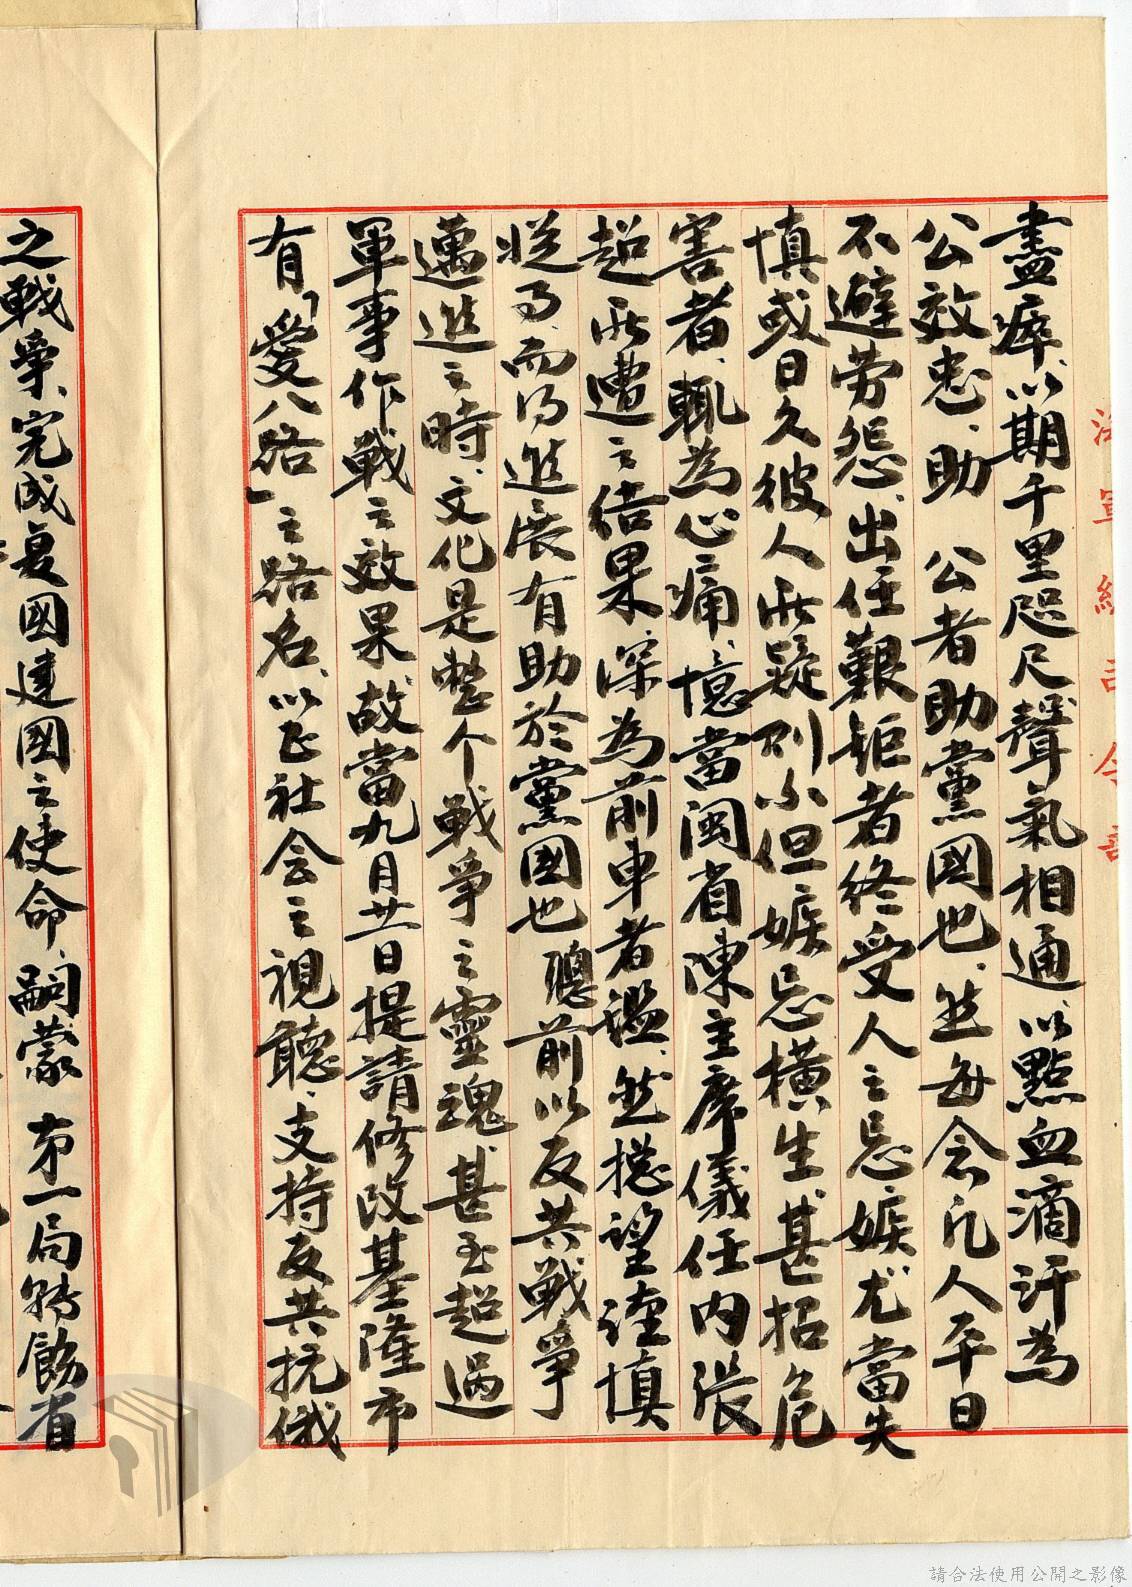 盡瘁、以期千里咫尺聲氣相通、以點血滴汗為
公效忠、助　公者助黨國也、然每念凡人平日
不避勞怨、出任艱鉅者終受人之忌嫉尤當失
慎或日久彼人所疑則不但嫉忌橫生甚招危
害者、輒為心痛、憶當閩省陳主席儀任內張
超所遭之結果、深為前車者鑑、然總望謹慎
從事、而得進展有助於黨國也　聰前以反共戰爭
邁進之時、文化是整个戰爭之靈魂甚至超過
軍事作戰之效果、故當九月廿日提請修改基隆市
有「愛八路」之路名、以正社会之視聽、支持反共抗俄
之戰爭、完成复國建國之使命、嗣蒙　第一局轉飭省
請合法使用公開之影像